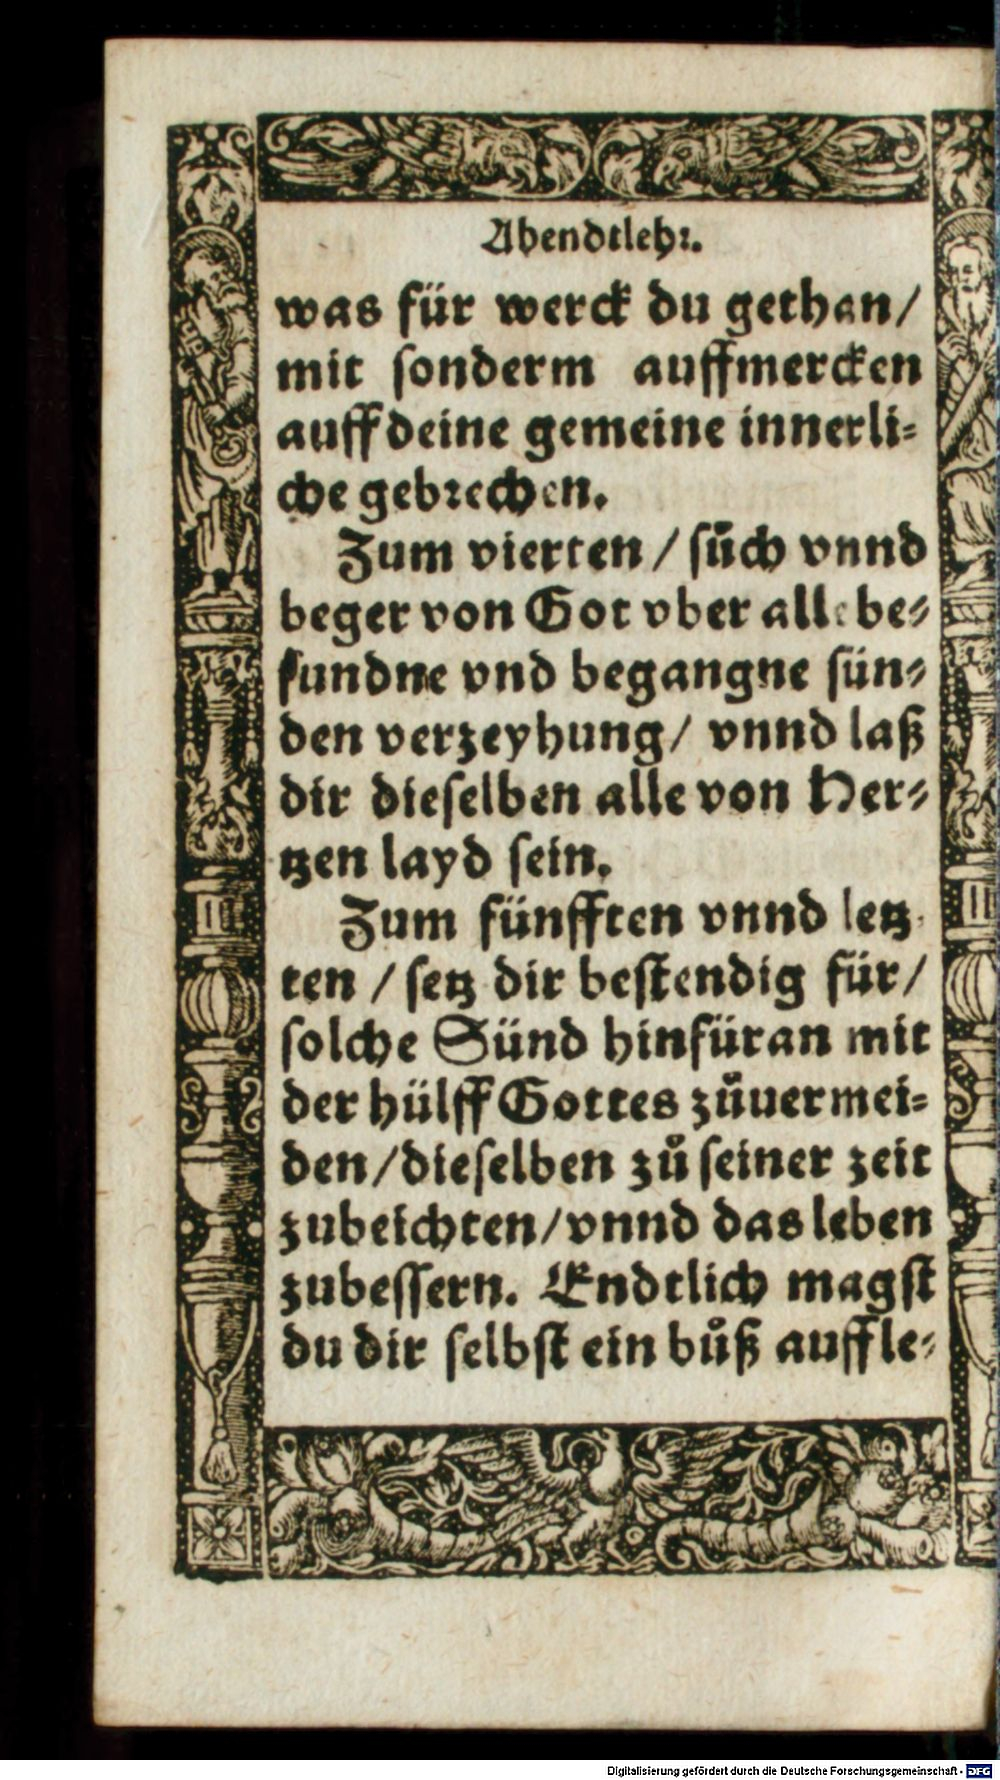 Abendtlehr.
was für werck du gethan/
mit sonderm auffmercken
auff deine gemeine innerli=
che gebrechen.
Zum vierten / sůch vnnd
beger von Got vber alle be=
fundne vnd begangne sün=
den verzeyhung/ vnnd laß
dir dieselben alle von Her=
tzen layd sein.
Zum fünfften vnnd letz
ten / setz dir bestendig für/
solche Sünd hinfüran mit
der hülff Gottes zůuermei=
den/dieselben zů seiner zeit
zubeichten/vnnd das leben
zubessern. Endtlich magst
du dir selbst ein bůß auffle=
Digitalisierung gefördert durch die Deutsche Forschungsgemeinschaft - DFG